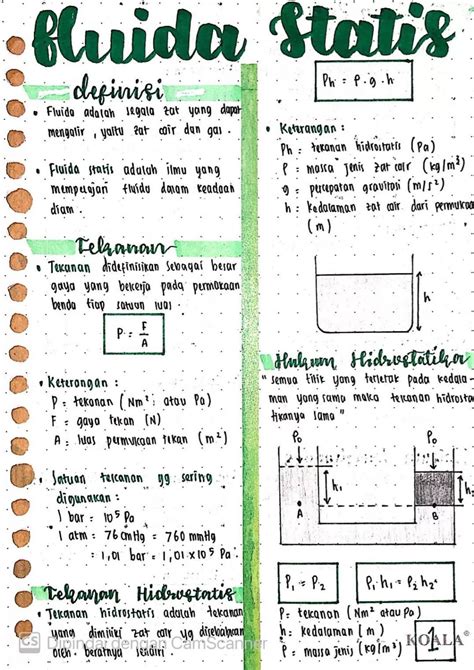 Fluida Statis
definisi
• Fluida adalah segala zat yang dapat
mengalir, yaitu zat cair dan gas.
• Fluida statis adalah ilmu yang
mempelajari fluida dalam keadaan
diam.
Tekanan
• Tekanan didefinisikan sebagai besar
gaya yang bekerja pada permukaan
benda tiap satuan luas.
P = F/A
• Keterangan :
P = tekanan (Nm² atau Pa)
F = gaya tekan (N)
A = luas permukaan tekan (m²)
• Satuan tekanan yg sering
digunakan :
1 bar = 10⁵ Pa
1 atm = 76 cmHg = 760 mmHg
= 1,01 bar = 1,01 x 10⁵ Pa.
Tekanan Hidrostatis
• Tekanan hidrostatis adalah tekanan
yang dimiliki zat cair yg disebabkan
oleh beratnya sendiri
CS Dipindai dengan CamScanner
Ph = ρ . g . h
• Keterangan :
Ph = tekanan hidrostatis (Pa)
ρ = massa jenis zat cair (kg/m³)
g = percepatan gravitasi (m/s²)
h = kedalaman zat cair dari permukaan
(m)
h
Hukum Hidrostatika
" semua titik yang terletak pada kedala-
man yang sama maka tekanan hidrosta-
tikanya sama "
Po Po
h₁ h₂
A B
P₁ = P₂
ρ₁ h₁ = ρ₂ h₂
P = tekanan (Nm² atau Pa)
h = kedalaman (m)
ρ = massa jenis (kg/m³)
KOALA®
1